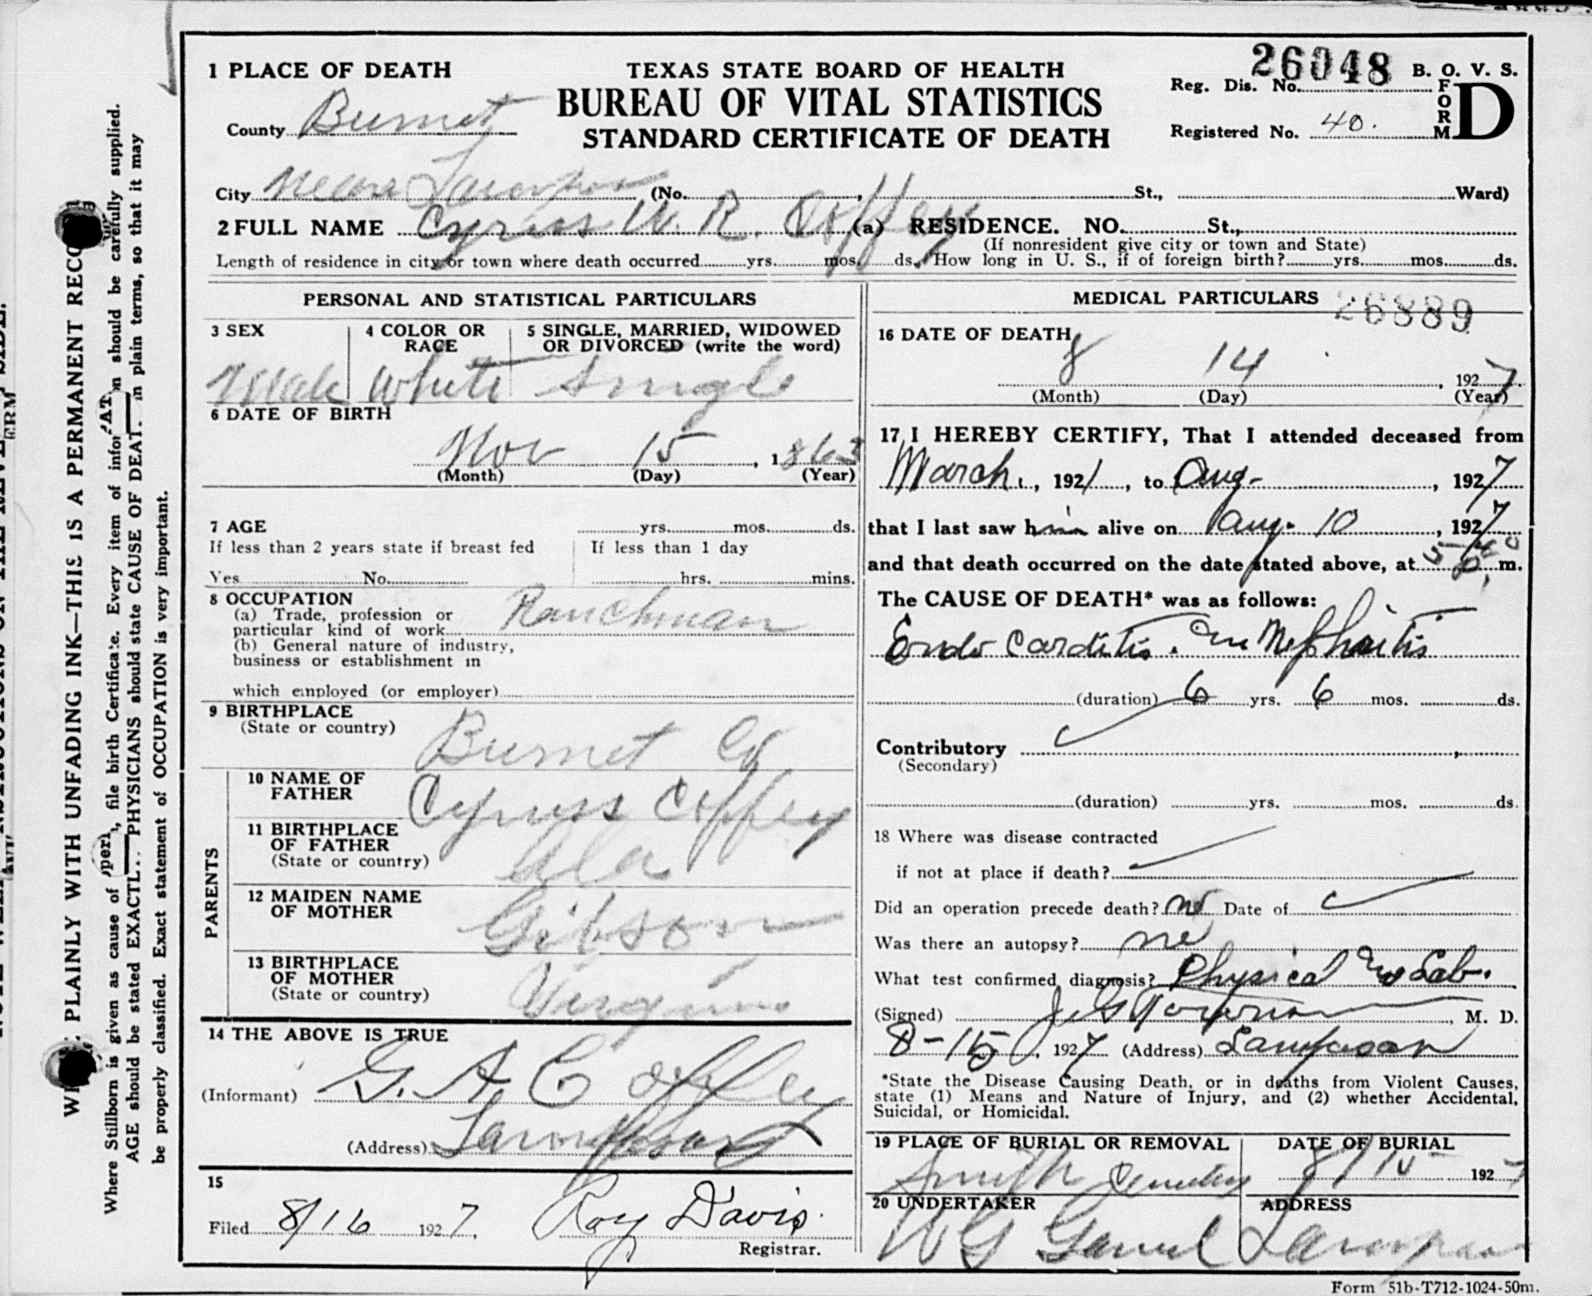 1 PLACE OF DEATH
TEXAS STATE BOARD OF HEALTH
BUREAU OF VITAL STATISTICS
STANDARD CERTIFICATE OF DEATH
26048 B. O. V. S.
Reg. Dis. No.
FORM D
Registered No. 40.
County Burnet
City near Lampasas (No. , St., Ward)
2 FULL NAME Cyrus W. R. Coffey (a) RESIDENCE. NO. St.,
(If nonresident give city or town and State)
Length of residence in city or town where death occurred yrs. mos. ds. How long in U. S., if of foreign birth? yrs. mos. ds.
PERSONAL AND STATISTICAL PARTICULARS
3 SEX
4 COLOR OR RACE
5 SINGLE, MARRIED, WIDOWED OR DIVORCED (write the word)
Male White Single
6 DATE OF BIRTH
Nov 15, 1863
(Month) (Day) (Year)
7 AGE yrs. mos. ds.
If less than 2 years state if breast fed
If less than 1 day
Yes No. hrs. mins.
8 OCCUPATION
(a) Trade, profession or
particular kind of work Ranchman
(b) General nature of industry,
business or establishment in
which employed (or employer)
9 BIRTHPLACE
(State or country) Burnet Co
PARENTS
10 NAME OF FATHER Cyrus Coffey
11 BIRTHPLACE OF FATHER
(State or country) Ala
12 MAIDEN NAME OF MOTHER Gibson
13 BIRTHPLACE OF MOTHER
(State or country) Virginia
14 THE ABOVE IS TRUE
(Informant) G. A. Coffey
(Address) Lampasas
15
Filed 8/16 1927. Roy Davis.
Registrar.
MEDICAL PARTICULARS
26889
16 DATE OF DEATH
8 14, 1927
(Month) (Day) (Year)
17 I HEREBY CERTIFY, That I attended deceased from
March., 1921, to Aug-, 1927
that I last saw him alive on Aug. 10, 1927
and that death occurred on the date stated above, at m.
The CAUSE OF DEATH* was as follows:
Endo Carditis. Nephritis
(duration) 6 yrs. 6 mos. ds.
Contributory
(Secondary)
(duration) yrs. mos. ds.
18 Where was disease contracted
if not at place if death?
Did an operation precede death? no Date of
Was there an autopsy? no
What test confirmed diagnosis? Physical Lab.
(Signed) M. D.
8-15, 1927 (Address) Lampasas
*State the Disease Causing Death, or in deaths from Violent Causes,
state (1) Means and Nature of Injury, and (2) whether Accidental,
Suicidal, or Homicidal.
19 PLACE OF BURIAL OR REMOVAL
DATE OF BURIAL
Smith Cemetery 8/15 1927
20 UNDERTAKER
ADDRESS
W G Lampasas
Form 51b-T712-1024-50m.
PLAINLY WITH UNFADING INK—THIS IS A PERMANENT RECO
Where Stillborn is given as cause of , file birth Certificate. Every item of should be carefully supplied.
AGE should be stated EXACTL. PHYSICIANS should state CAUSE OF DEAT. in plain terms, so that it may
be properly classified. Exact statement of OCCUPATION is very important.